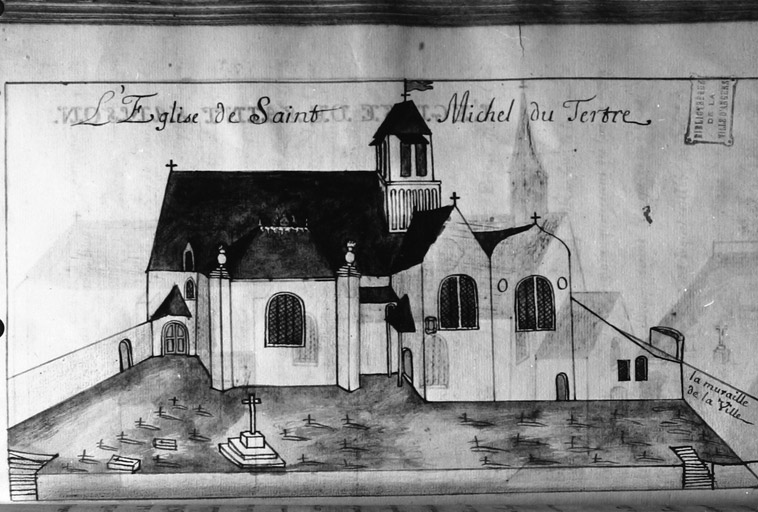 L'Eglise de Saint Michel du Tertre
BIBLIOTHEQUE
DE LA
VILLE D'ANGERS
la muraille
de la Ville